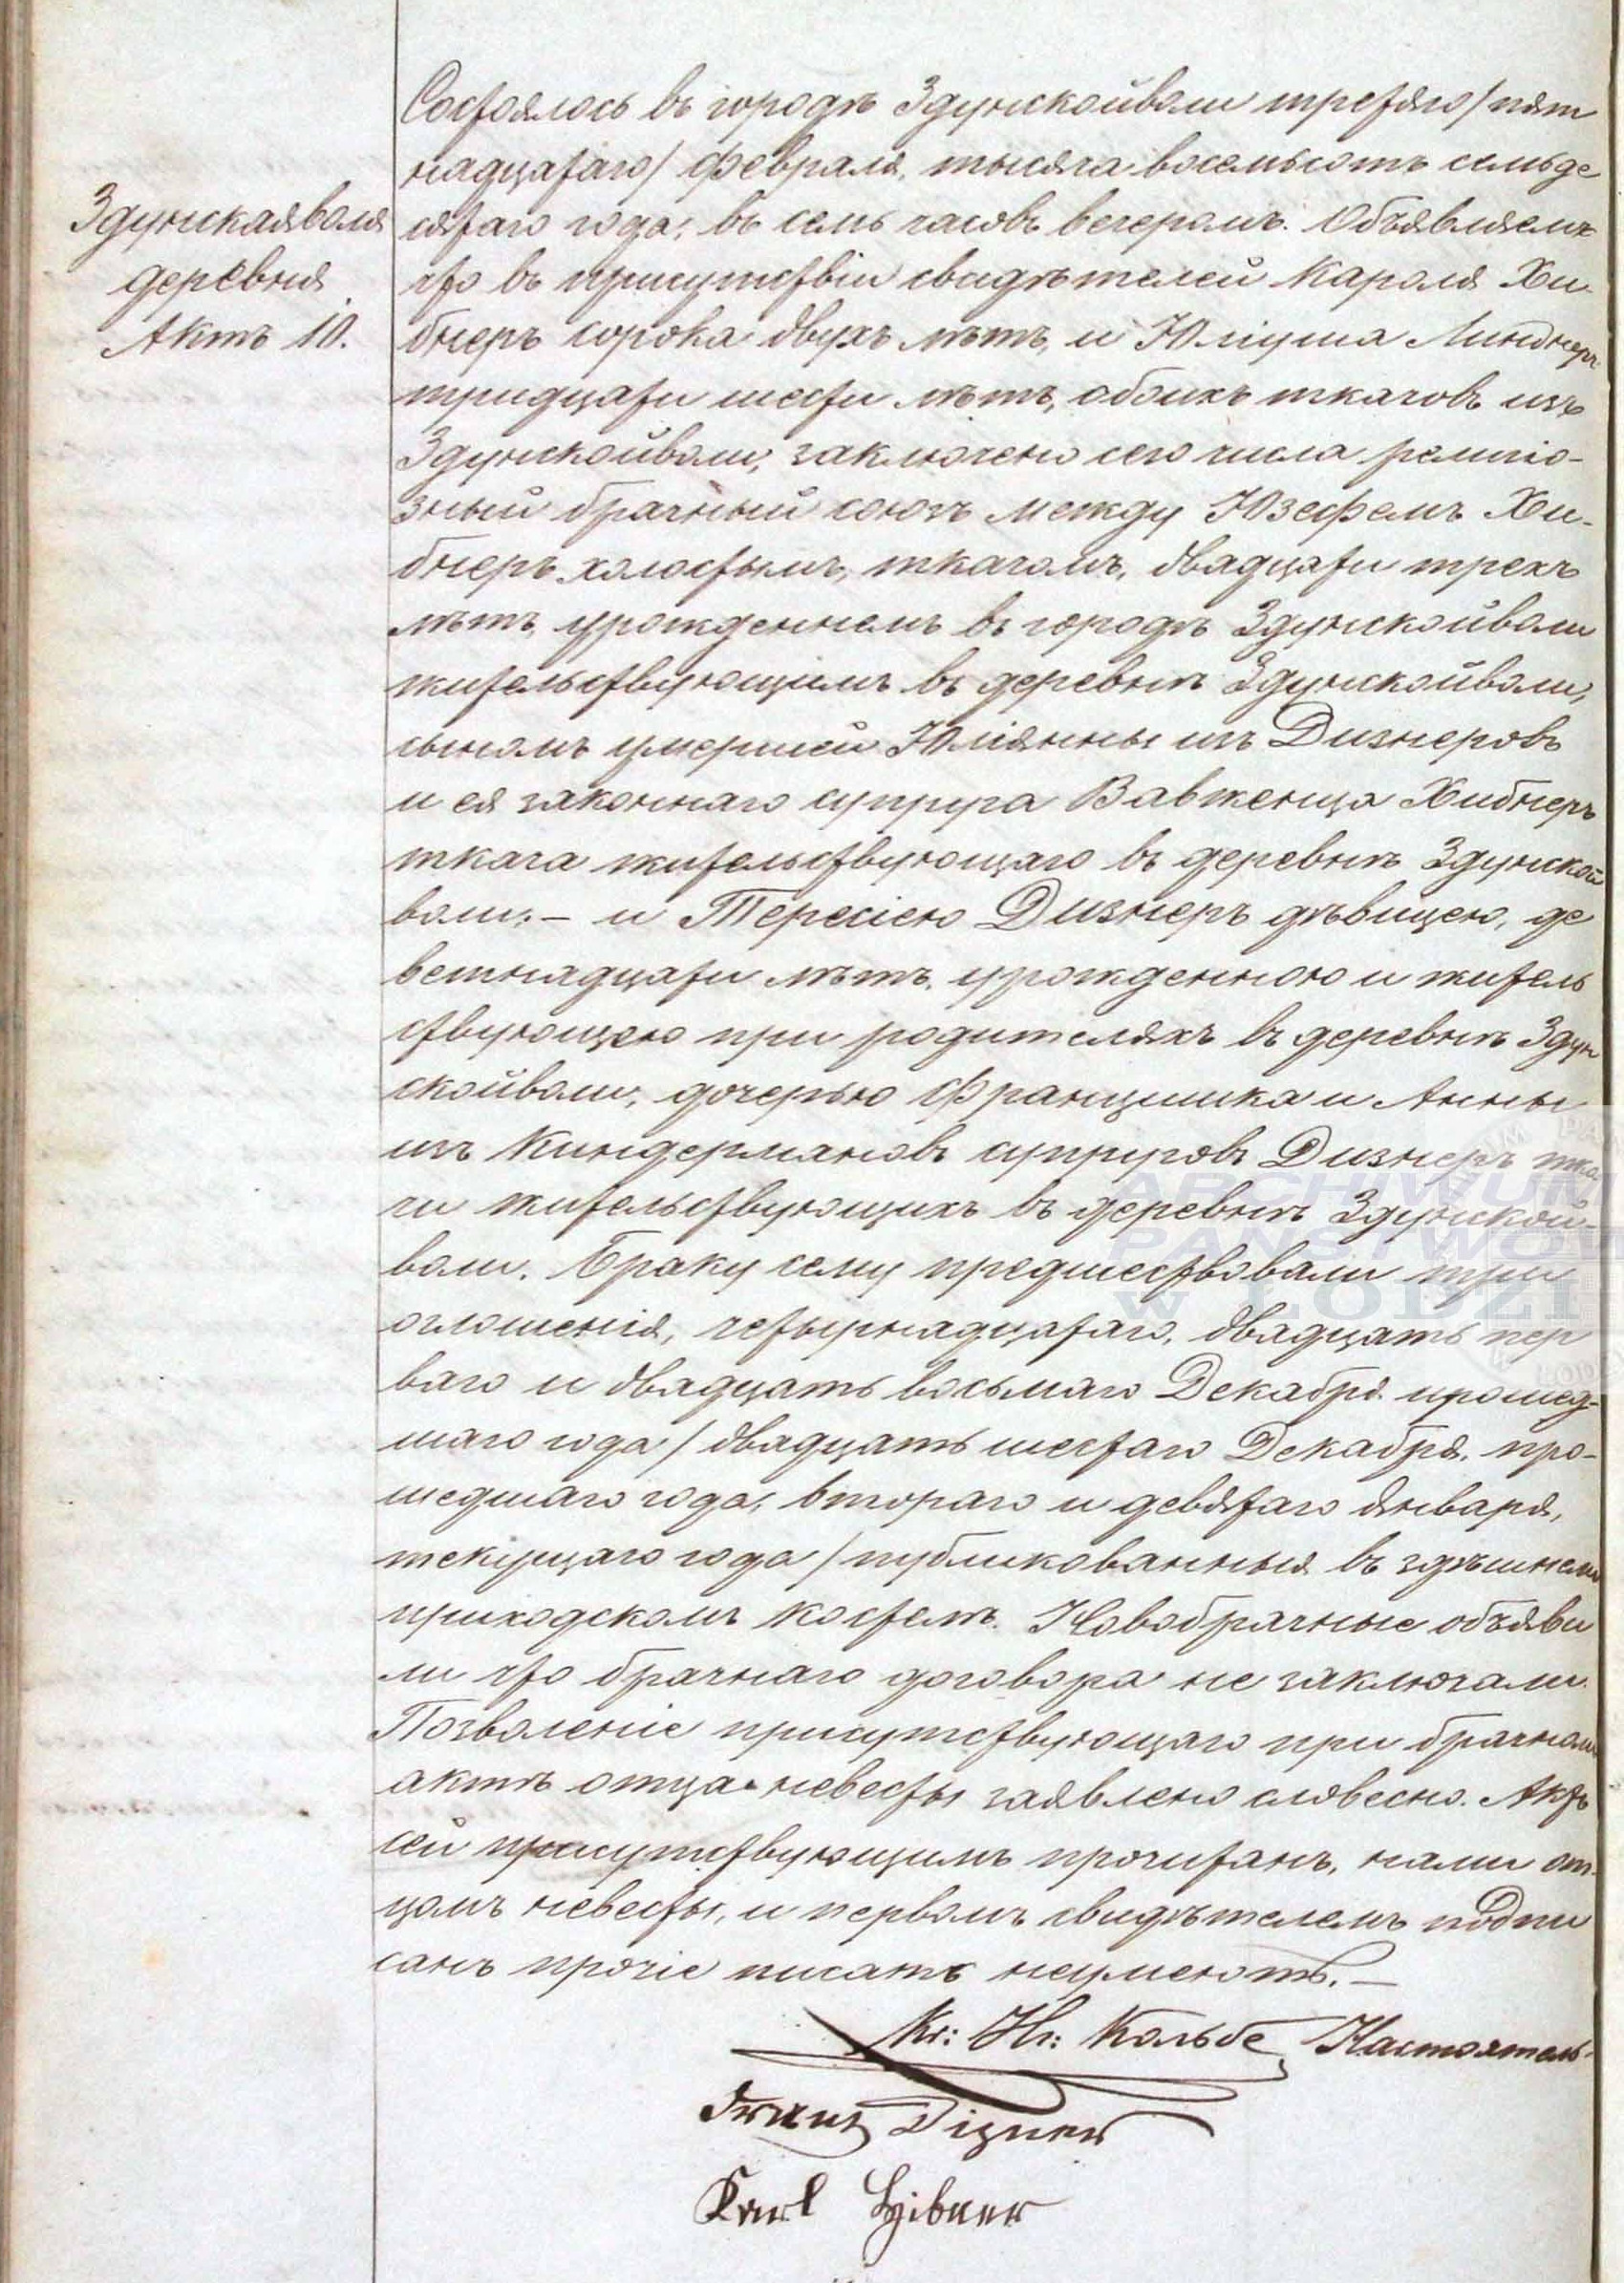 Здунскаяволя
деревня
Актъ 10.
Состоялось въ городѣ Здунскойволи третяго /пят
надцатаго/ февраля, тысяча восемьсотъ семьде
сятаго года, въ семь часовъ вечеромъ. Объявляемъ
что въ присутствіи свидѣтелей Кароля Хи-
бнеръ сорока двухъ лѣтъ, и Юліуша Линднеръ
тридцати шести лѣтъ, обоихъ ткачовъ изъ
Здунскойволи, заключено сего числа религіо-
зный брачный союзъ между Юзефемъ Хи-
бнеръ холостымъ, ткачомъ, двадцати трехъ
лѣтъ, урожденнемъ въ городѣ Здунскойволи
жительствующимъ въ деревнѣ Здунскойволи,
сыномъ умершей Юліянны изъ Дизнеровъ
и ея законнаго супруга Вавженца Хибнеръ
ткача жительствующаго въ деревнѣ Здунской
воли; – и Тересіею Дизнеръ дѣвицею, де
ветнадцати лѣтъ, урожденною и житель
ствующею при родителяхъ въ деревнѣ Здун
скойволи, дочерью Францишка и Анны
изъ Киндермановъ супруговъ Дизнеръ тка
чи жительствующихъ въ деревнѣ Здунской-
воли. Браку сему предшествовали три
оглошенія, четырнадцатаго, двадцать пер
ваго и двадцать восьмаго Декабря прошед-
шаго года / двадцать шестаго Декабря, про-
шедшаго года, втораго и девятаго Января,
текущаго года / публикованныя въ здѣшнемъ
приходскомъ костелѣ. Новобрачные объяви
ли что брачнаго договора не заключали.
Позволеніе присутствующаго при брачномъ
актѣ отца невесты заявлено словесно. Актъ
сей присутствующимъ прочитанъ, нами от-
цомъ невесты, и первомъ свидѣтелемъ подпи
санъ прочіе писать неумеютъ. –
Кс: Ин: Кольбе Настоятель.
Franz Dizner
Karl Hibner
ARCHIWUM
PAŃSTWOWE
W ŁODZI